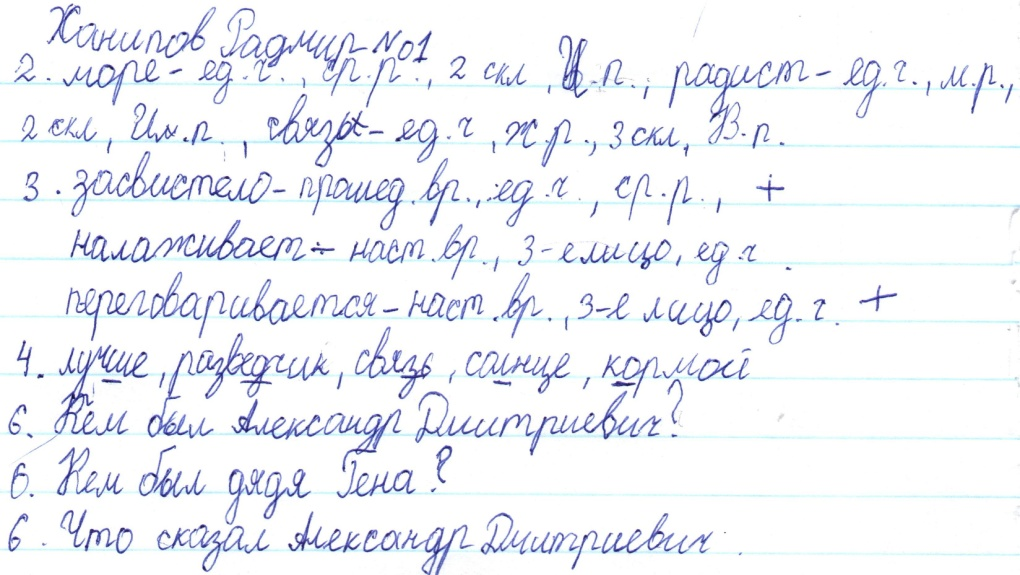 Ханипов Радмир №1
2. море - ед.ч., ср.р., 2 скл, И.п., радист - ед.ч., м.р.,
2 скл, Им.п., связь - ед.ч, ж.р., 3 скл, В.п.
3. засвистело - прошед.вр., ед.ч., ср.р., +
налаживает - наст.вр., 3-е лицо, ед.ч.
переговаривается - наст.вр., 3-е лицо, ед.ч. +
4. лучше, разведчик, связь, солнце, кормой
6. Кем был Александр Дмитриевич?
6. Кем был дядя Гена?
6. Что сказал Александр Дмитриевич.